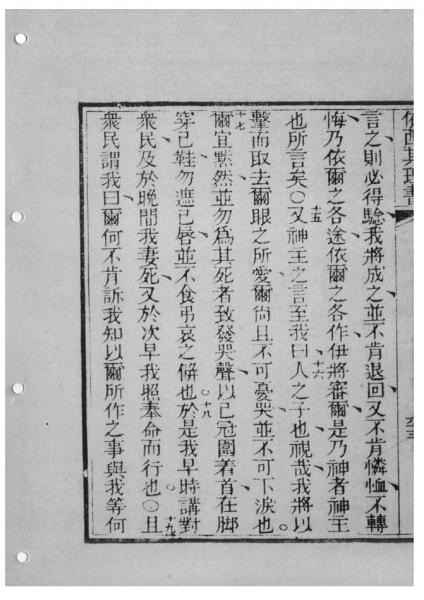 言之則必得驗我將成之並不肯退回又不肯憐恤不轉
悔乃依爾之各途依爾之各作伊將審爾是乃神者神主
也所言矣○十五又神主之言至我曰十六人之子也視哉我將以
擊而取去爾眼之所愛爾尚且不可憂哭並不可下淚也○
十七爾宜黙然並勿為其死者致發哭聲以己冠圍着首在脚
穿己鞋勿遮己唇並不食弔哀之餅也○十八於是我早時講對
衆民及於晚間我妻死又於次早我照奉命而行也○十九且
衆民謂我曰爾何不肯訴我知以爾所作之事與我等何